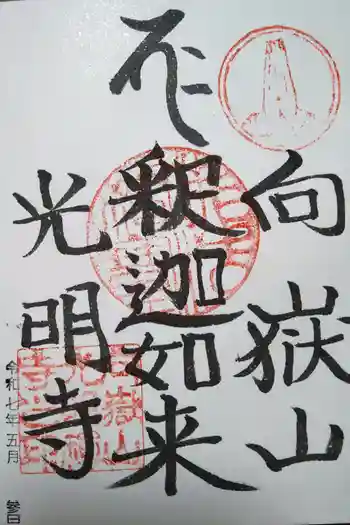 向嶽山
釈迦如来
光明寺
令和七年五月
参日